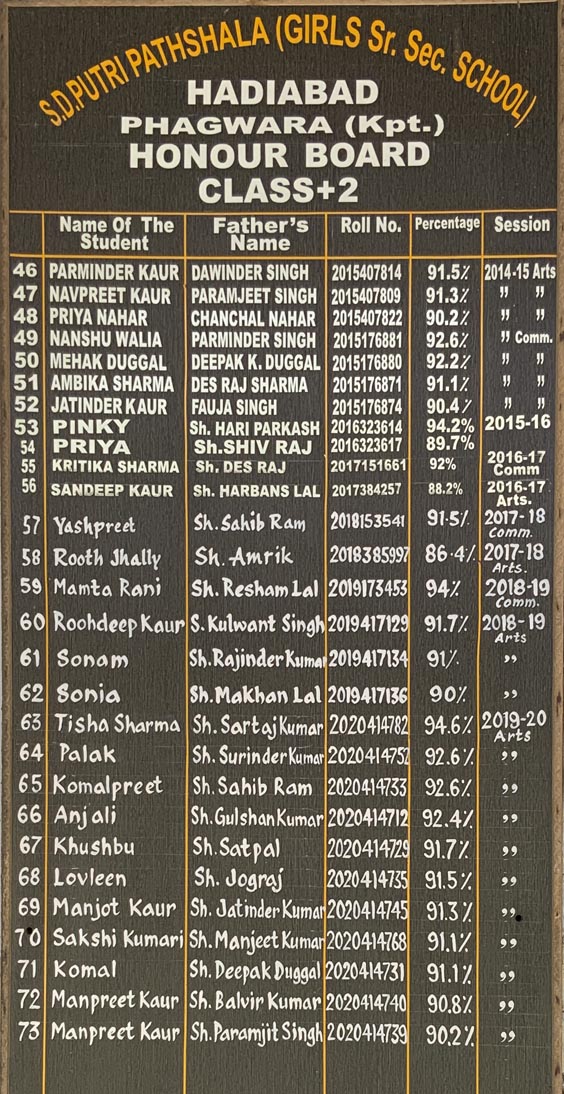 S.D.PUTRI PATHSHALA (GIRLS Sr. Sec. SCHOOL)
HADIABAD
PHAGWARA (Kpt.)
HONOUR BOARD
CLASS+2
Name Of The Student Father's Name Roll No. Percentage Session
46 PARMINDER KAUR DAWINDER SINGH 2015407814 91.5% 2014-15 Arts
47 NAVPREET KAUR PARAMJEET SINGH 2015407809 91.3% " "
48 PRIYA NAHAR CHANCHAL NAHAR 2015407822 90.2% " "
49 NANSHU WALIA PARMINDER SINGH 2015176881 92.6% " Comm.
50 MEHAK DUGGAL DEEPAK K. DUGGAL 2015176880 92.2% " "
51 AMBIKA SHARMA DES RAJ SHARMA 2015176871 91.1% " "
52 JATINDER KAUR FAUJA SINGH 2015176874 90.4% " "
53 PINKY Sh. HARI PARKASH 2016323614 94.2% 2015-16
54 PRIYA Sh.SHIV RAJ 2016323617 89.7%
55 KRITIKA SHARMA Sh. DES RAJ 2017151661 92% 2016-17 Comm
56 SANDEEP KAUR Sh. HARBANS LAL 2017384257 88.2% 2016-17 Arts.
57 Yashpreet Sh.Sahib Ram 2018153541 91.5% 2017-18 Comm.
58 Rooth Jhally Sh. Amrik 2018385997 86.4% 2017-18 Arts.
59 Mamta Rani Sh.Resham Lal 2019173453 94% 2018-19 Comm.
60 Roohdeep Kaur S.Kulwant Singh 2019417129 91.7% 2018-19 Arts
61 Sonam Sh.Rajinder Kumar 2019417134 91% "
62 Sonia Sh.Makhan Lal 2019417136 90% "
63 Tisha Sharma Sh. Sartaj Kumar 2020414782 94.6% 2019-20 Arts
64 Palak Sh.Surinder Kumar 2020414752 92.6% "
65 Komalpreet Sh.Sahib Ram 2020414733 92.6% "
66 Anjali Sh.Gulshan Kumar 2020414712 92.4% "
67 Khushbu Sh.Satpal 2020414729 91.7% "
68 Lovleen Sh. Jograj 2020414735 91.5% "
69 Manjot Kaur Sh. Jatinder Kumar 2020414745 91.3% "
70 Sakshi Kumari Sh.Manjeet Kumar 2020414768 91.1% "
71 Komal Sh.Deepak Duggal 2020414731 91.1% "
72 Manpreet Kaur Sh.Balvir Kumar 2020414740 90.8% "
73 Manpreet Kaur Sh.Paramjit Singh 2020414739 90.2% "